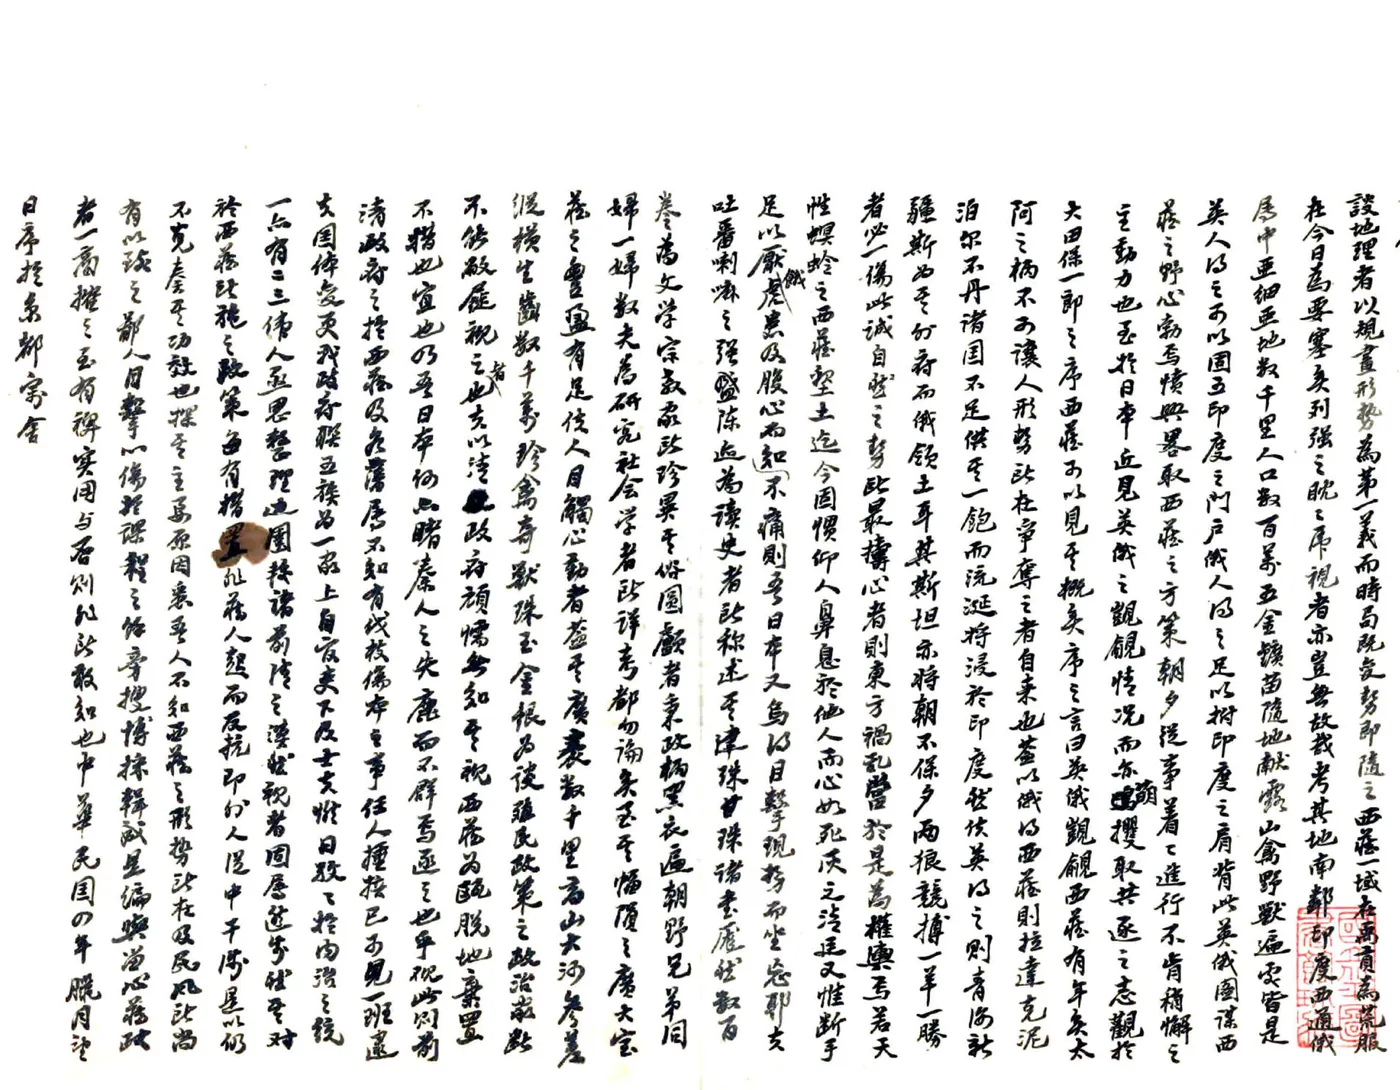 談地理者以規畫形勢為第一義而時局既變勢即隨之西藏一域在禹貢為荒服
在今日為要塞矣列强之眈々虎視者亦豈無故哉考其地南鄰印度西通俄
屬中亜細亜地数千里人口数百萬五金鑛苗隨地献露山禽野獸遍處皆是
英人得之可以固五印度之門户俄人得之足以拊印度之肩背此英俄圖謀西
藏之野心勃焉憤興畧取西藏之方策朝夕從事着々進行不肯稍懈之
主動力也至於日本近見英俄之覬覦情况而亦萌攫取共逐之志觀於
大田保一郎之序西藏可以見其概矣序之言曰英俄覬覦西藏有年矣太
阿之柄不可讓人形势所在争奪之者自来也蓋以俄得西藏則拉達克泥
泊尔不丹诸国不足供其一飽而流涎将浸於印度然使英得之則青海新
疆斯为其外府而俄領土耳其斯坦亦將朝不保夕两狼競搏一羊一勝
者必一傷此誠自然之势所最擣心者則東方禍乱當於是為權輿焉若夫
性螟蛉之西藏堅土迄今固慣仰人鼻息於他人而心如死灰之清廷又惟断手
足以厭餓虎患及腹心而不知痛則吾日本又烏得目擊現势而坐忘耶夫
吐番喇嘛之强盛陈迹為读史者所称述其津珠甘珠诸書雇然数百
卷為文学宗教家所珍異其俗圓顱者秉政柄黑衣遍朝野兄弟同
婦一婦数夫為研究社会学者所詳考都勿論矣至其幅隕之廣大宝
藏之豐盈有足使人目觸心動者蓋其廣袤数千里高山大河參差
縱横生齒数千萬珍禽奇獸珠玉金银为谈殖民政策之政治家断
不能敝屣視之者也夫以清政府頑懦無知其視西藏为甌脱地棄置
不惜也宜也乃吾日本何亦睹秦人之失鹿而不群焉逐之也乎視此則前
清政府之於西藏及各藩属不知有伐枝傷本主事任人撞撲已可見一班逮
夫国体変更我政府联五族为一家上自官吏下及士夫惟日孜々於内治之统
一亦有二三偉人亟思整理边圉較諸前清之漠然視者固屬進步然其对
於西藏所施之政策每有措置非藏人起而反抗即外人從中干涉是以仍
不克奏其功效也探其主要原因裏吾人不知西藏之形势所在及民风所尚
有以致之鄙人目擊心傷於課程之餘旁搜博採輯誠是编與留心藏政
者一商榷之至有裨实用与否则非所敢知也中華民国四年臘月望
日序於京都寓舍